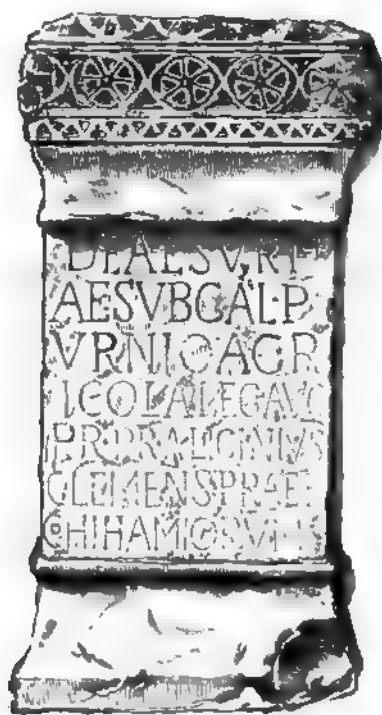 DEAESVRI
AESVBCALP
VRNIOAGR
ICOLALEGAVG
PRPRALICINIVS
CLEMENSPRAEF
COHIHAMIORVM